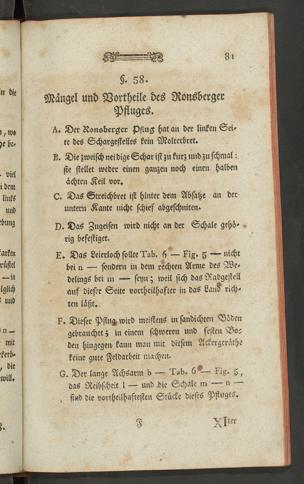 81
§. 58.
Mängel und Vortheile des Ronsberger
Pfluges.
A. Der Ronsberger Pflug hat an der linken Sei-
te des Schargestelles kein Molterbret.
B. Die zweischneidige Schar ist zu kurz und zu schmal:
sie stellet weder einen ganzen noch einen halben
ächten Keil vor.
C. Das Streichbret ist hinter dem Absatze an der
untern Kante nicht schief abgeschniten.
D. Das Zugeisen wird nicht an der Schale gehö-
rig befestiget.
E. Das Leierloch sollte Tab. 6 — Fig. 5 — nicht
bei n — sondern in dem rechten Arme des We-
delings bei m — seyn; weil sich das Radgestell
auf dieser Seite vortheilhafter in das Land rich-
ten läßt.
F. Dieser Pflug wird meistens in sandichten Böden
gebraucht; in einem schweren und festen Bo-
den hingegen kann man mit diesem Ackergeräthe
keine gute Feldarbeit machen.
G. Der lange Achsarm b — Tab. 6 — Fig. 5,
das Reihscheit l — und die Schäle m — n —
sind die vortheilhaftesten Stücke dieses Pfluges.
F XIter